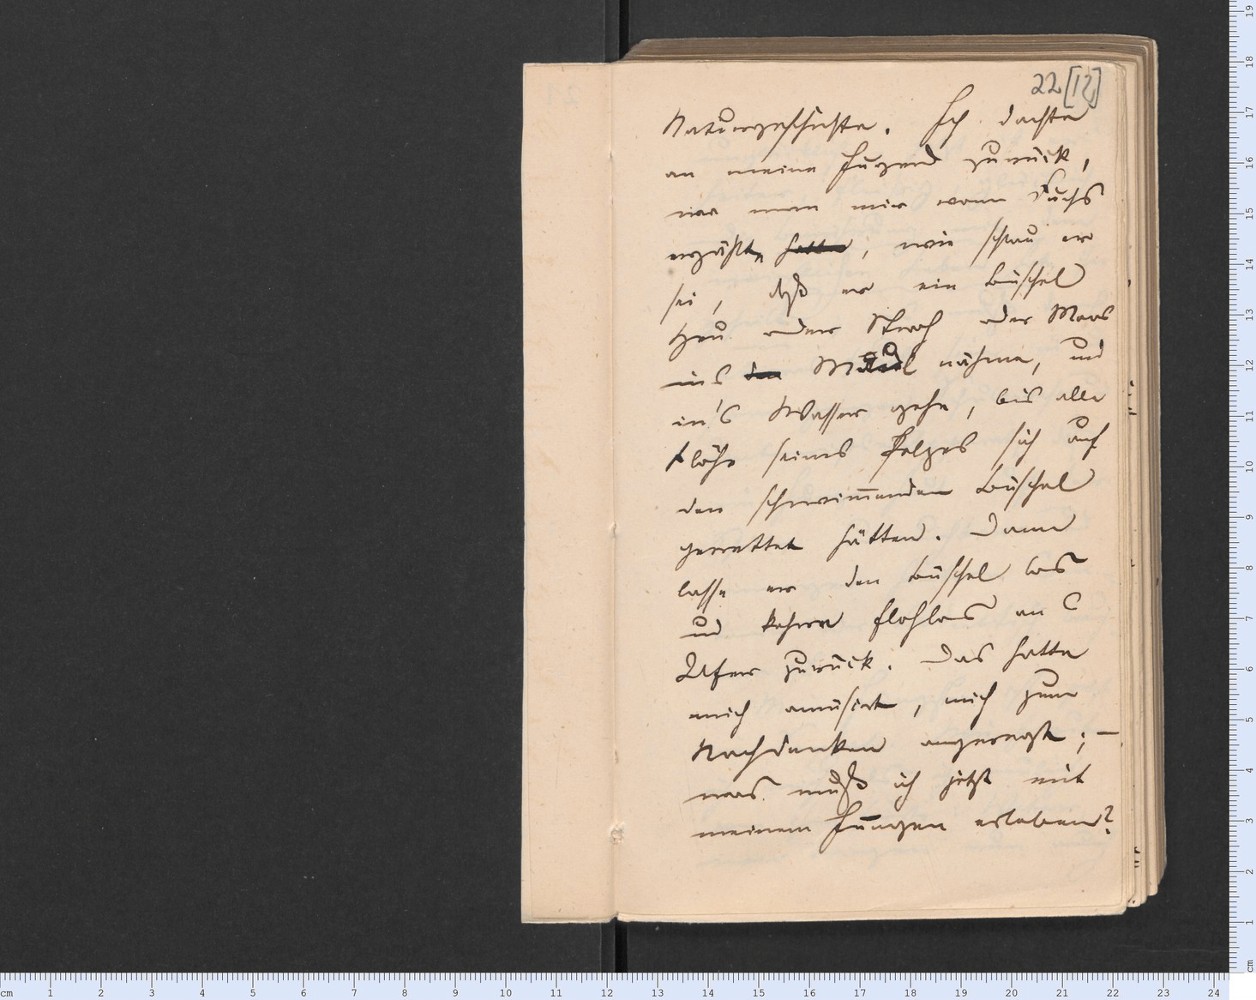 22 [12]
Naturgeschichte. Ich dachte
an meine Jugend zurück,
wie man mir vom Fuchs
erzählt, hatte, wie schlau er
sei, daß er ein Büschel
Heu oder Stroh oder Moos
ins den Maul nähme, und
in's Wasser gehe, bis alle
Flöhe seines Pelzes sich auf
den schwim̅enden Büschel
gerettet hätten. Dann
lasse er den Büschel los
und kehre flohlos an's
Ufer zurück. Das hatte
mich amüsirt, mich zum
Nachdenken angeregt; –
was muß ich jetzt mit
meinem Jungen erleben?